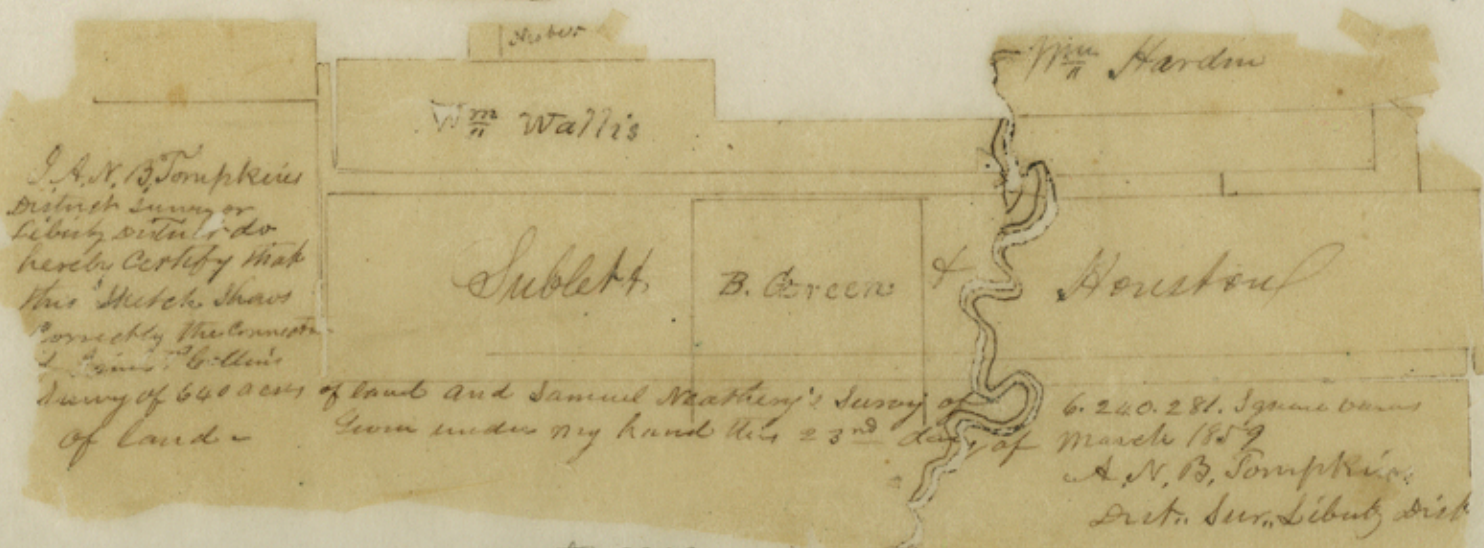 Wm Hardin
Wm Wallis
Sublett B. Green & Houston
I A. N. B. Tompkins
District Surveyor
Liberty District do
hereby Certify that
this Sketch Shows
Correctly the Connection
Collins
Survey of 640 acres of land and Samuel Survey of 6.240.281. Square varas
of land - Given under my hand this 23rd day of March 1859
A. N. B. Tompkins
Dist. Sur. Liberty Dist